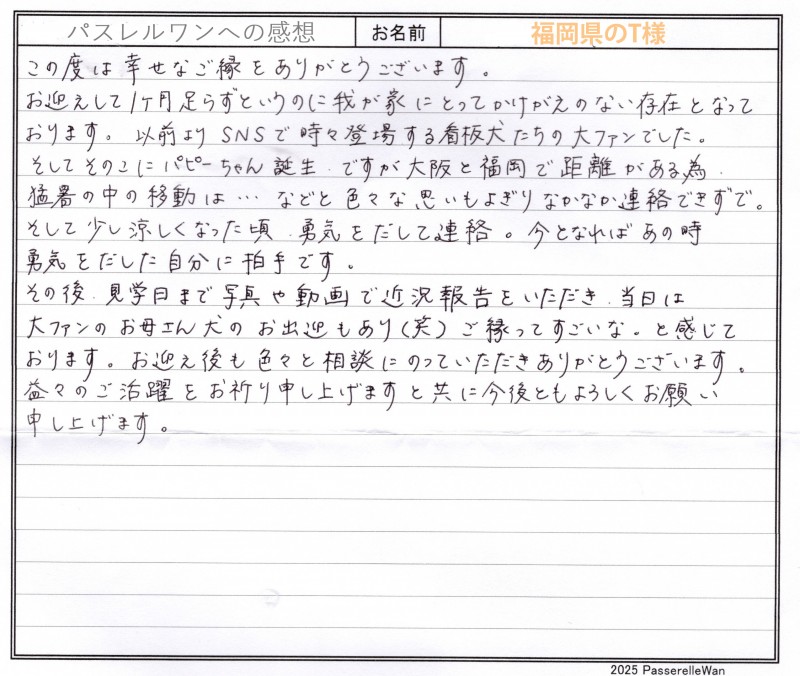 パスレルワンへの感想 お名前 福岡県のT様
この度は幸せなご縁をありがとうございます。
お迎えして1ヶ月足らずというのに我が家にとってかけがえのない存在となって
おります。以前よりSNSで時々登場する看板犬たちの大ファンでした。
そしてそのこにパピーちゃん誕生、ですが大阪と福岡で距離がある為、
猛暑の中の移動は…などと色々な思いもよぎりなかなか連絡できずで。
そして少し涼しくなった頃、勇気をだして連絡。今となればあの時
勇気をだした自分に拍手です。
その後、見学日まで写真や動画で近況報告をいただき、当日は
大ファンのお母さん犬のお出迎もあり(笑)ご縁ってすごいな。と感じて
おります。お迎え後も色々と相談にのっていただきありがとうございます。
益々のご活躍をお祈り申し上げますと共に今後ともよろしくお願い
申し上げます。
2025 PasserelleWan